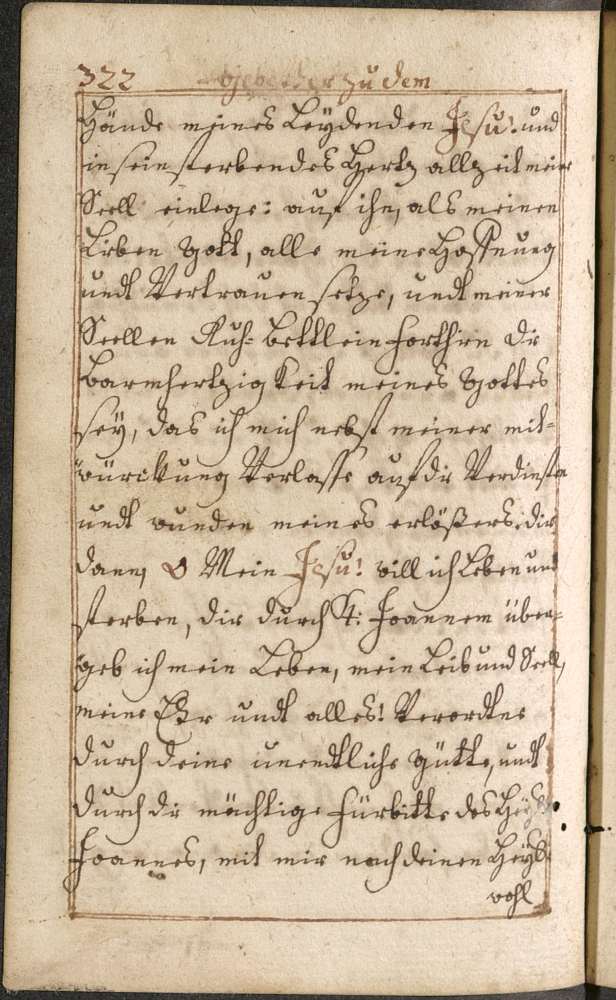 322 Gjebether zu dem
Hände meines Leÿdenden Jesu! und
in sein sterbendes Hertz allzeit meine
Seell einlege: auf ihn, als meinen
Lieben Gott, alle meine Hoffnung
undt Vertrauen setze, undt meiner
Seellen Ruh-bettlein forthin die
barmhertzigkeit meines Gottes
seÿ, das ich mich nebst meiner mit-
würckung Verlasse auf die Verdiensten
undt wunden meines erlößers: dir
dann, O Mein Jesu! will ich Leben und
sterben, dir durch St: Joannem über-
geb ich mein Leben, mein Leib und Seell,
meine Ehr undt alles! Verordtne
durch deine unendtliche gütte, undt
durch die mächtige fürbitte des Heÿl:
Joannes, mit mir nach deinen Heÿl:
wohl